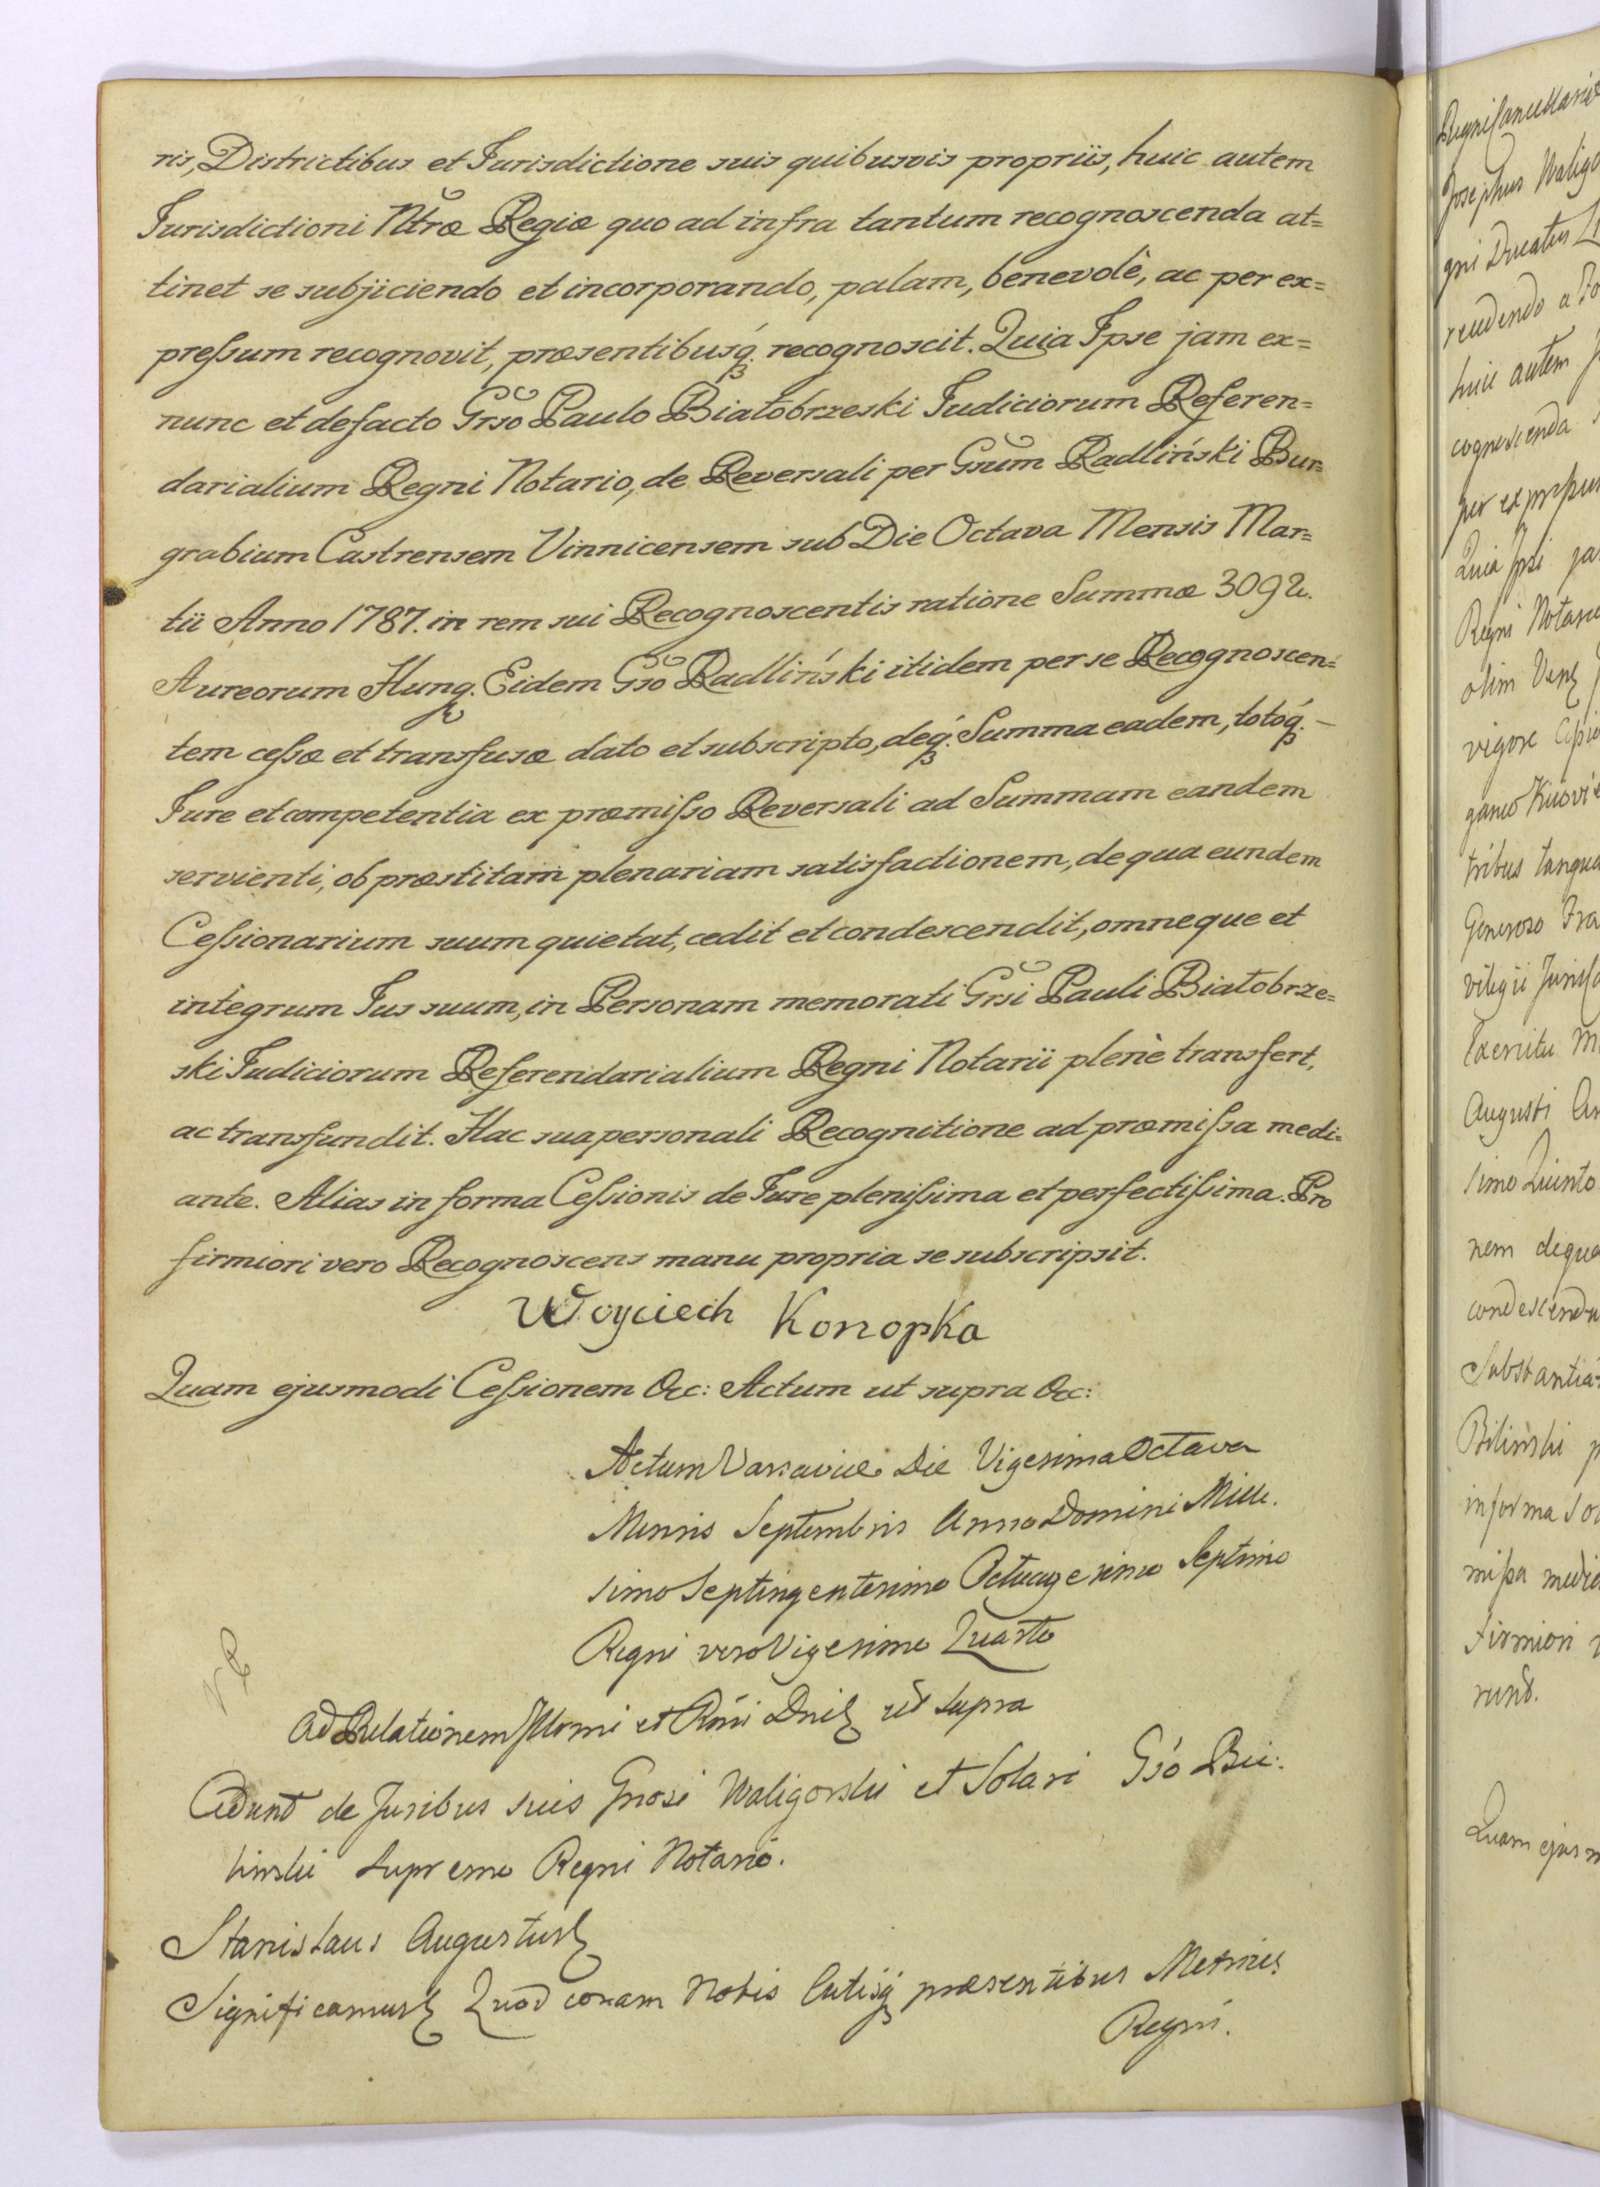 ris, Districtibus et Jurisdictione suis quibusvis propriis, huic autem
Jurisdictioni Ntræ Regiæ quo ad infra tantum recognoscenda at=
tinet se subjiciendo et incorporando, palam, benevolè, ac per ex=
pressum recognovit, præsentibusq́ recognoscit. Quia Ipse jam ex=
nunc et defacto Grso Paulo Białobrzeski Judiciorum Referen=
darialium Regni Notario, de Reversali per Gsum Radliński Bur=
grabium Castrensem Vinnicensem sub Die Octava Mensis Mar=
tii Anno 1787. in rem sui Recognoscentis ratione Summæ
Aureorum Hung. Eidem Gso Radliński itidem per se Recognoscen=
tem cessæ et transfusæ dato et subscripto, deq́. Summa eadem, totoq́. –
Jure et competentia ex præmisso Reversali ad Summam eandem
servienti, ob præstitam plenariam satisfactionem, de qua eundem
Cessionarium suum quietat, cedit et condescendit, omneque et
integrum Jus suum, in Personam memorati Grsi Pauli Białobrze=
ski Judiciorum Referendarialium Regni Notarii plenè transfert,
ac transfundit. Hac sua personali Recognitione ad præmissa medi=
ante. Alias in forma Cessionis de Jure plenissima et perfectissima. Pro
firmiori vero Recognoscens manu propria se subscripsit.
Woyciech Konopka
Quam ejusmodi Cessionem &c: Actum ut supra &c:
Actum Varsaviæ Die Vigesima Octava
Mensis Septembris Anno Domini Mille.
simo Septingentesimo Octuagesimo Septimo
Regni vero Vigesimo Quarto
Ad Relationem Illomi et Rñi Dni ut supra
Cedunt de Juribus suis Gnosi Waligorski et Solari Gso Bie:
linski Supremo Regni Notario.
Stanislaus Augustus
Significamus Quod coram Nobis Actisq præsentibus Metrices
Regni.
Regni Cancellariæ
Josephus Waligo
gni Ducatus Li
recedendo a Fo
huic autem J
cognoscenda
per expressu
Quia Ipsi ja
Regni Notari
olim
vigore Cessio
tribus tanqua
Generoso Fra
vilegii
Exercitu M
Augusti An
simo Quinto
nem de qua
condescendu
Substantia
Biliński p
in forma
missa media
firmiori v
runt.
Quam ejusm